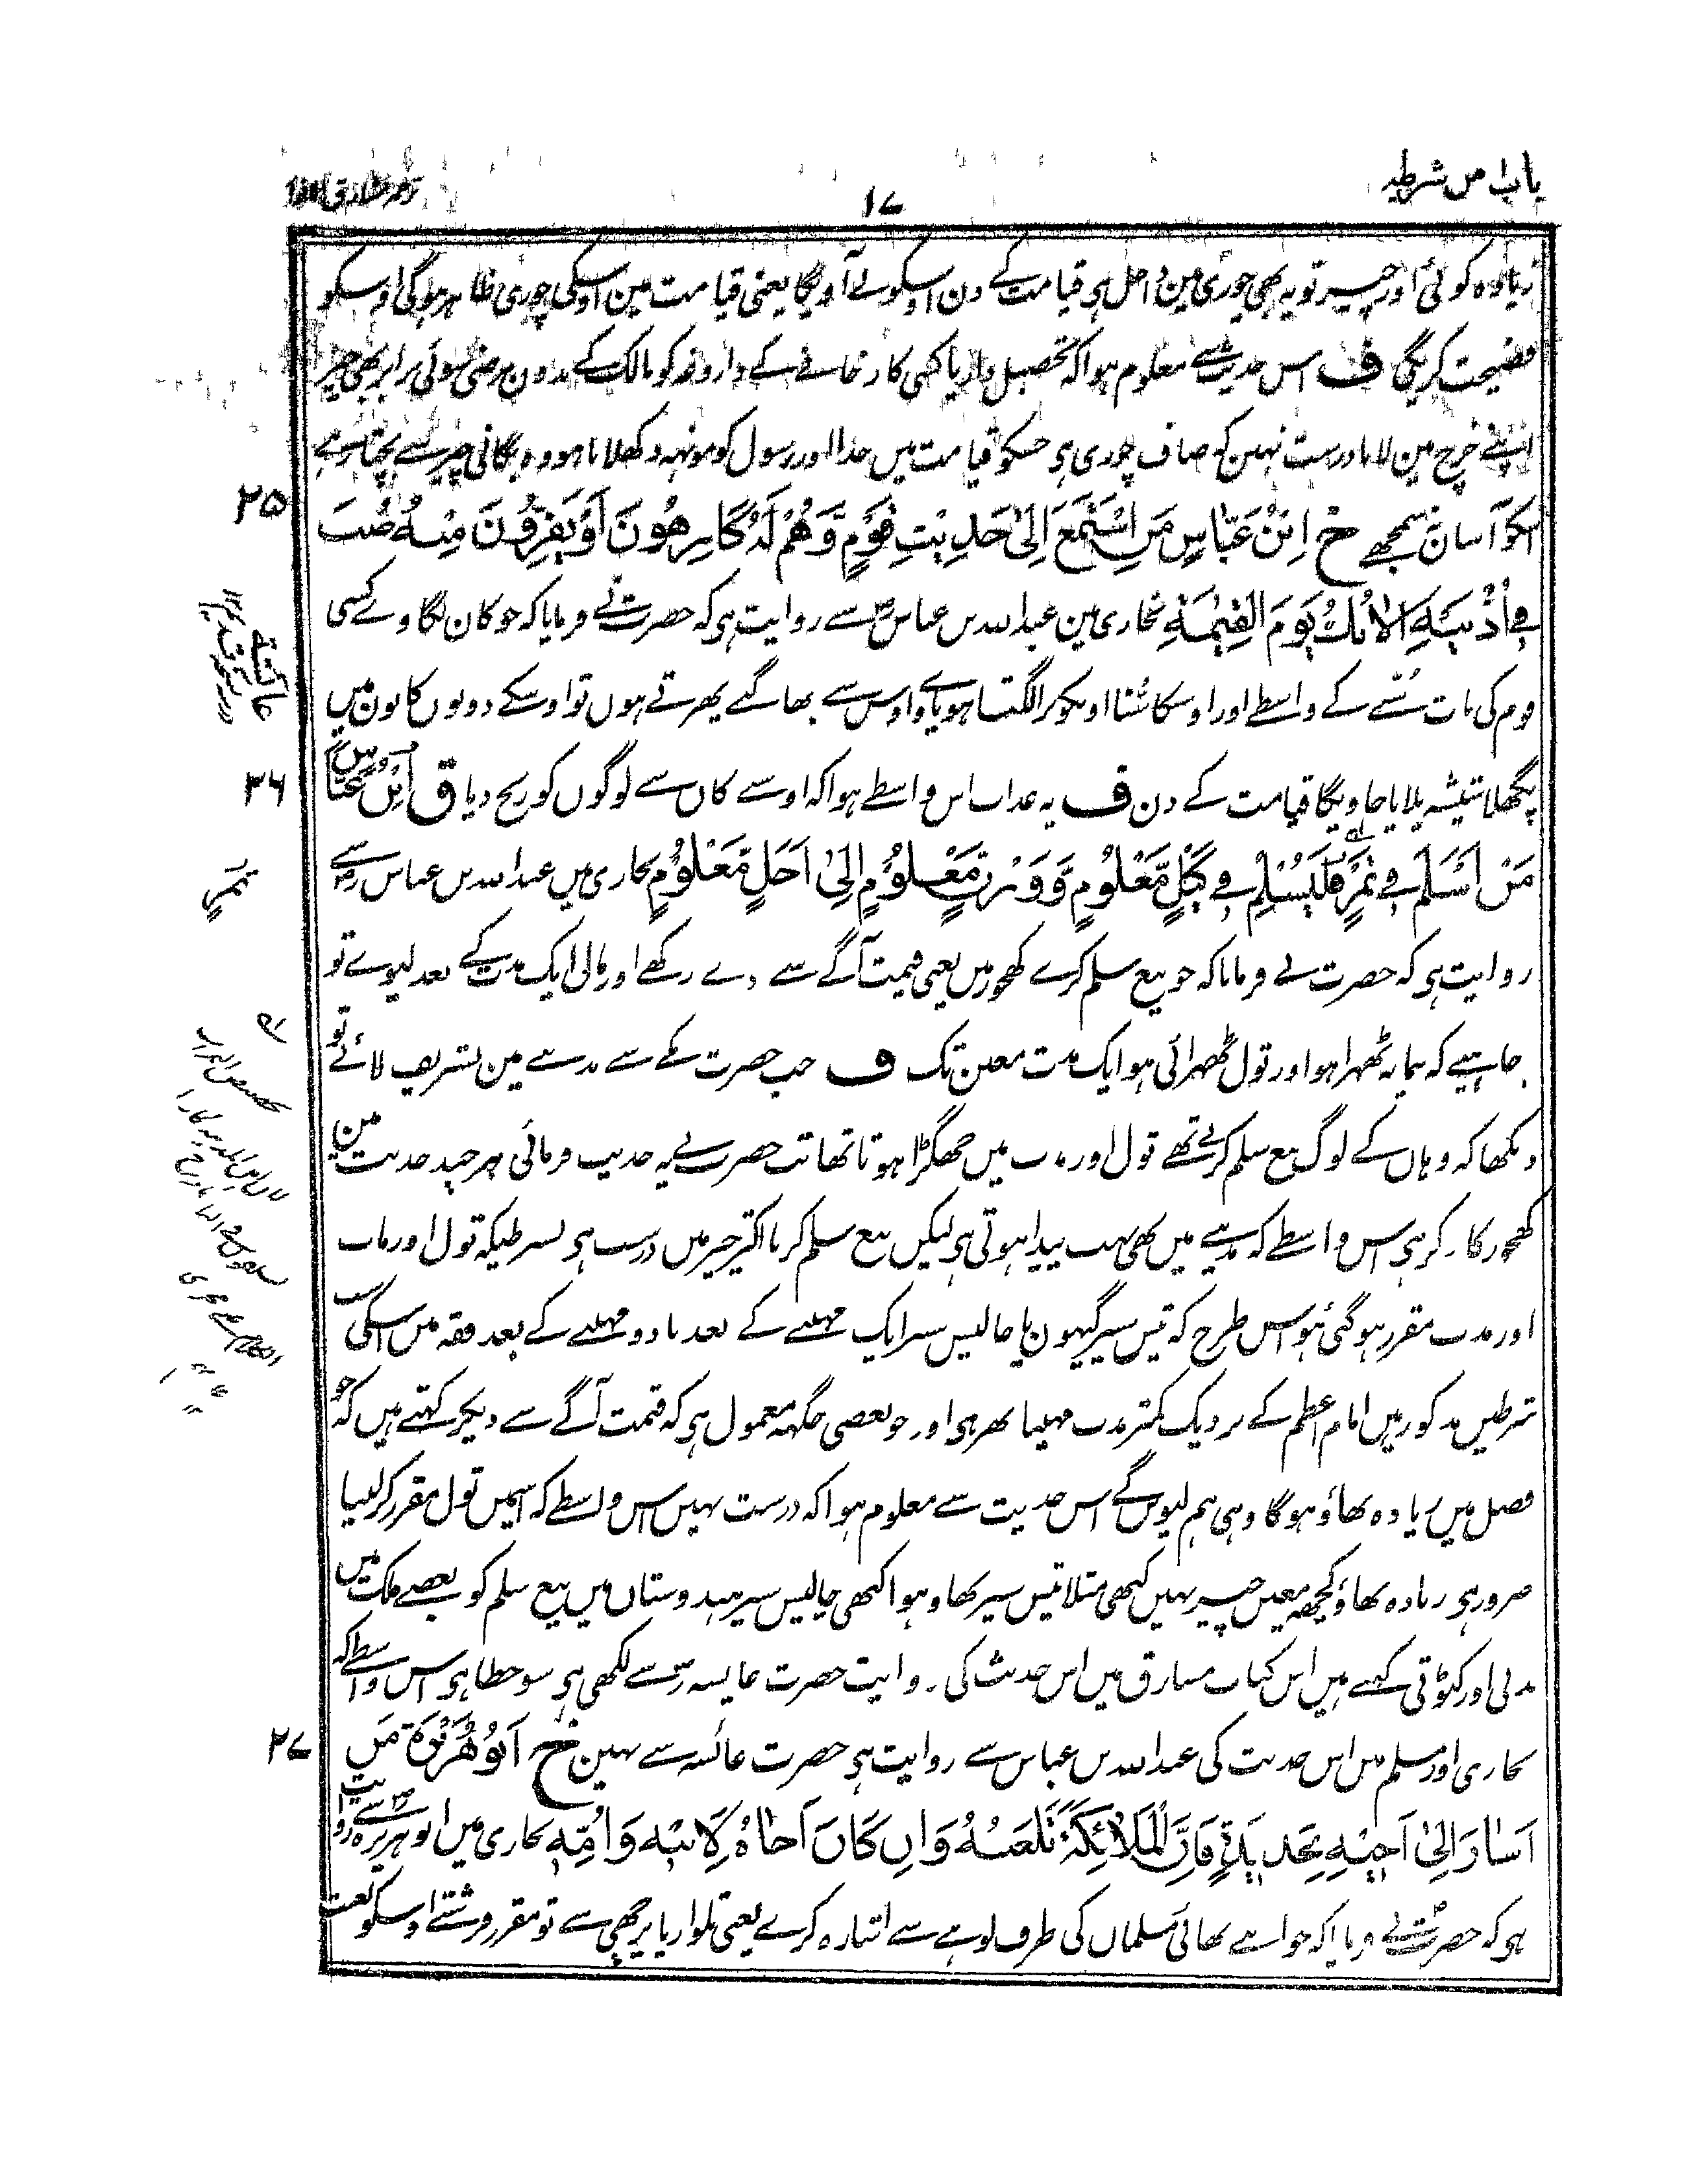 باب من شرطیہ
۱۷
ترجمہ مشارق الانوار
زیادہ کوئی اور چیز تو یہ بھی چوری مین داخل ہی قیامت کے دن اوسکو لے آویگا یعنی قیامت مین اوسکی چوری ظاہر ہوگی اوسکو
فضیحت کریگی ف اس حدیث سے معلوم ہوا کہ تحصیل دار یا کسی کارخانے کے داروغہ کو مالک کے بدون مرضی سوئی برابر بھی چیز
اپنے خرچ مین لانا درست نہین کہ صاف چوری ہی جسکو قیامت میں خدا اور رسول کو مونہہ دکھلانا ہو وہ بگانی چیز سے بچتا رہے
اسکو آسان نسمجھے خ اِبْنُ عَبَّاسٍ مَنِ اسْتَمَعَ اِلیٰ حَدِیْثِ قَوْمٍ وَّهُمْ لَهٗ كَارِهُونَ اَوْ یَفِرُّونَ مِنْهُ صُبَّ
۲۵
فِي اُذُنَيْهِ الْاٰنُكُ يَوْمَ الْقِيٰمَةِ بخاری مین عبداللہ بن عباس رض سے روایت ہی کہ حضرت نے فرمایا کہ جو کان لگاوے کسی
قوم کی بات سننے کے واسطے اور اوسکا سننا اونکو برا لگتا ہو یا وے اوس سے بھاگے پھرتے ہوں تو اوسکے دونوں کانون میں
پگھلا شیشہ پلایا جاویگا قیامت کے دن ف یہ عذاب اس واسطے ہوا کہ اوسنے کان سے لوگوں کو رنج دیا ق اِبْنُ عَبَّاسٍ
۲۶
مَنْ اَسْلَمَ فِي تَمْرٍ فَلْيُسْلِمْ فِي كَيْلٍ مَّعْلُومٍ وَّوَزْنٍ مَّعْلُوْمٍ اِلیٰ اَجَلٍ مَّعْلُوْمٍ بخاری میں عبداللہ بن عباس رض سے
ثمر
روایت ہی کہ حضرت نے فرمایا کہ جو بیع سلم کرے کھجور میں یعنی قیمت آگے سے دے رکھے اور مال ایک مدت کے بعد لیوے تو
چاہیے کہ پیمانہ ٹھہرا ہو اور تول ٹھہرائی ہو ایک مدت معین تک ف جب حضرت مکے سے مدینے مین تشریف لائے تو
دیکھا کہ وہاں کے لوگ بیع سلم کرتے تھے تول اور ماپ میں جھگڑا ہوتا تھا تب حضرت نے یہ حدیث فرمائی ہرچند حدیث مین
کھجور کا ذکر ہی اس واسطے کہ مدینے میں کھجور بہت پیدا ہوتی ہی لیکن بیع سلم کرنا اکثر چیز میں درست ہی بشرطیکہ تول اور ماپ
اور مدت مقرر ہو گئی ہو اس طرح کہ تیس سیر گیہون یا چالیس سیر ایک مہینے کے بعد یا دو مہینے کے بعد فقہ میں اسکی سب
شرطیں مذکور ہیں امام اعظم کے نزدیک کمتر مدت مہینا بھر ہی اور جو بعضی جگہہ معمول ہی کہ قیمت آگے سے دیکر کہتے ہیں کہ جو
فصل میں زیادہ بھاؤ ہوگا وہی ہم لیویں گے اس حدیث سے معلوم ہوا کہ درست نہیں اس واسطے کہ اسمیں تول مقرر کر لینا
ضرور ہی زیادہ بھاؤ کچھہ معین چیز نہیں کبھی مثلا تیس سیر بھاو ہوا کبھی چالیس سیر ہندوستان میں بیع سلم کو بعضے ملک میں
بدنی اور کٹوتی کہتے ہیں اس کتاب مشارق میں اس حدیث کی روایت حضرت عایشہ رض سے لکھی ہی سو خطا ہی اس واسطے کہ
بخاری اور مسلم میں اس حدیث کی عبداللہ بن عباس سے روایت ہی حضرت عائشہ سے نہین خ اَبُوْ هُرَيْرَةَ مَنْ
۲۷
اَشَارَ اِلیٰ اَخِيْهِ بِحَدِيْدَةٍ فَاِنَّ الْمَلَائِكَةَ تَلْعَنُهُ وَاِنْ كَانَ اَخَاهُ لِاَبِيْهِ وَاُمِّهٖ بخاری میں ابو ہریرہ رض سے روایت
ہی کہ حضرت نے فرمایا کہ جو اپنے بھائی مسلمان کی طرف لوہے سے اشارہ کرے یعنی تلوار یا برچھی سے تو مقرر فرشتے اوسکو لعنت